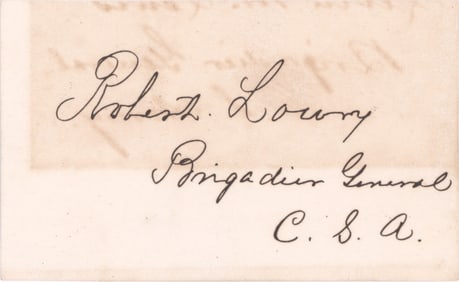 Robert. Lowry
Brigadier General
C. S. A.